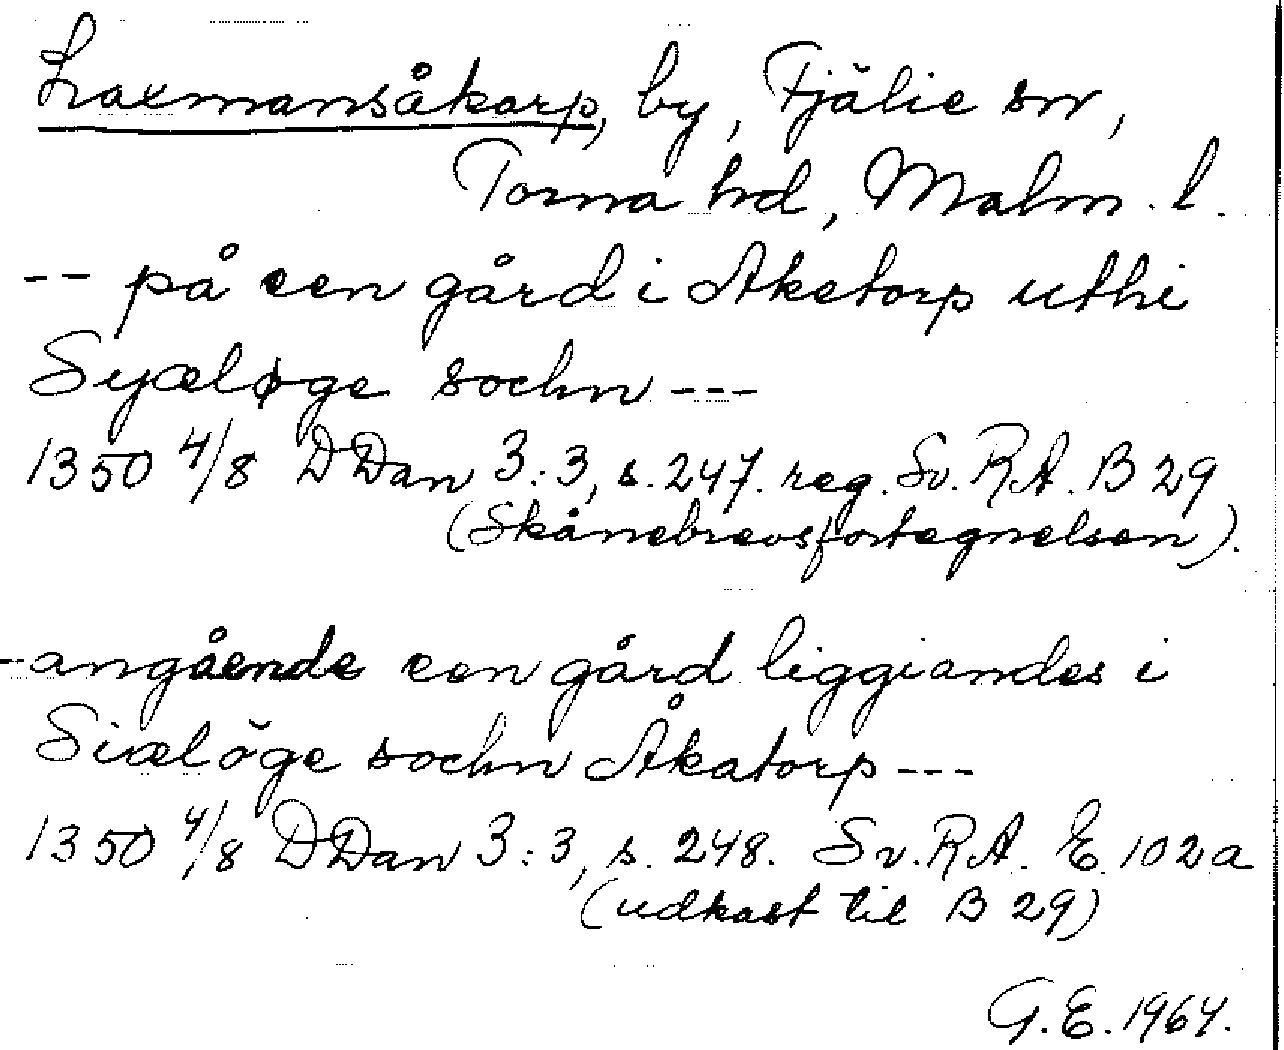 Laxmansåkarp, by, Fjälie sn,
Torna hd, Malm. l.
-- på een gård i Aketorp uthi
Syæløge sochn ---
1350 4/8 DDan 3:3, s. 247. reg. Sv. RA. B 29
(Skånebrevsfortegnelsen).
-- angående een gård liggiandes i
Siælöge sochn Åkatorp ---
1350 4/8 DDan 3:3, s. 248. Sv. RA. E 102a
(udkast til B 29)
G.E. 1964.